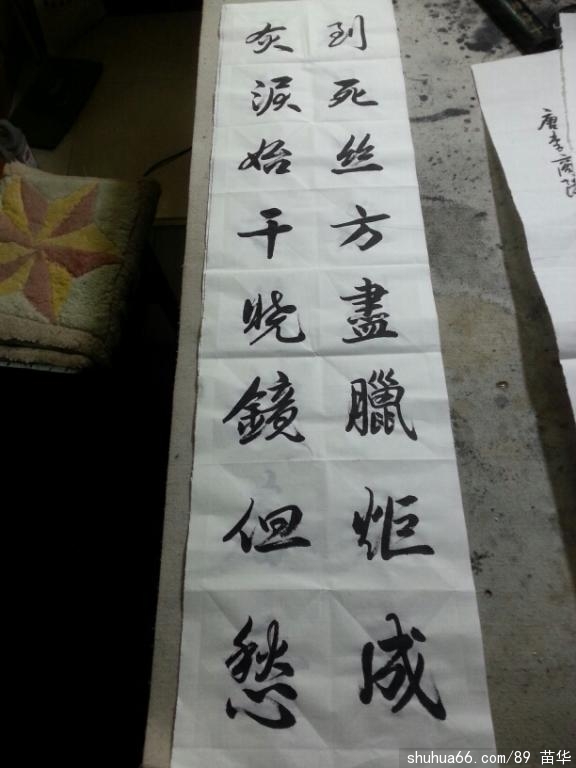 到死丝方盡臘炬成
灰淚始干晓鏡但愁
唐李商隐
shuhua66.com/89 苗华